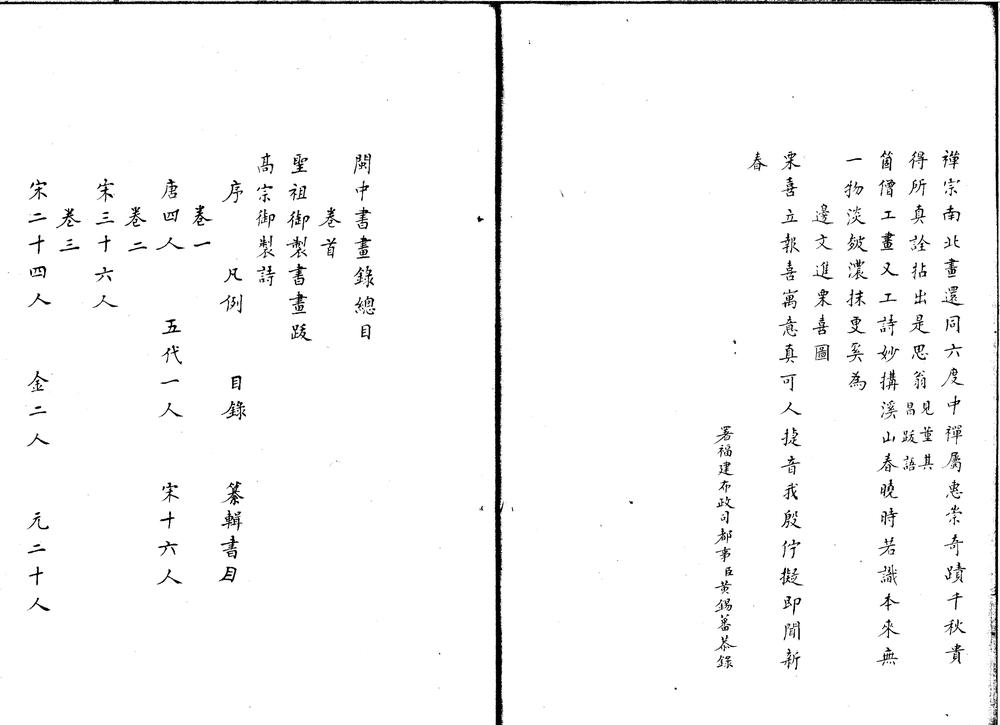 禪宗南北畫還同六度中禪屬惠崇奇蹟千秋貴
得所真詮拈出是思翁見董其昌跋語
箇僧工畫又工詩妙搆溪山春曉時若識本來無
一物淡皴濃抹更奚為
邊文進栗喜圖
栗喜立報喜寓意真可人捷音我殷佇擬即聞新
春
署福建布政司都事臣黃錫蕃恭錄
閩中書畫錄總目
卷首
聖祖御製書畫跋
高宗御製詩
序　凡例　目錄　纂輯書目
卷一
唐四人　五代一人　宋十六人
卷二
宋三十六人
卷三
宋二十四人　金二人　元二十人